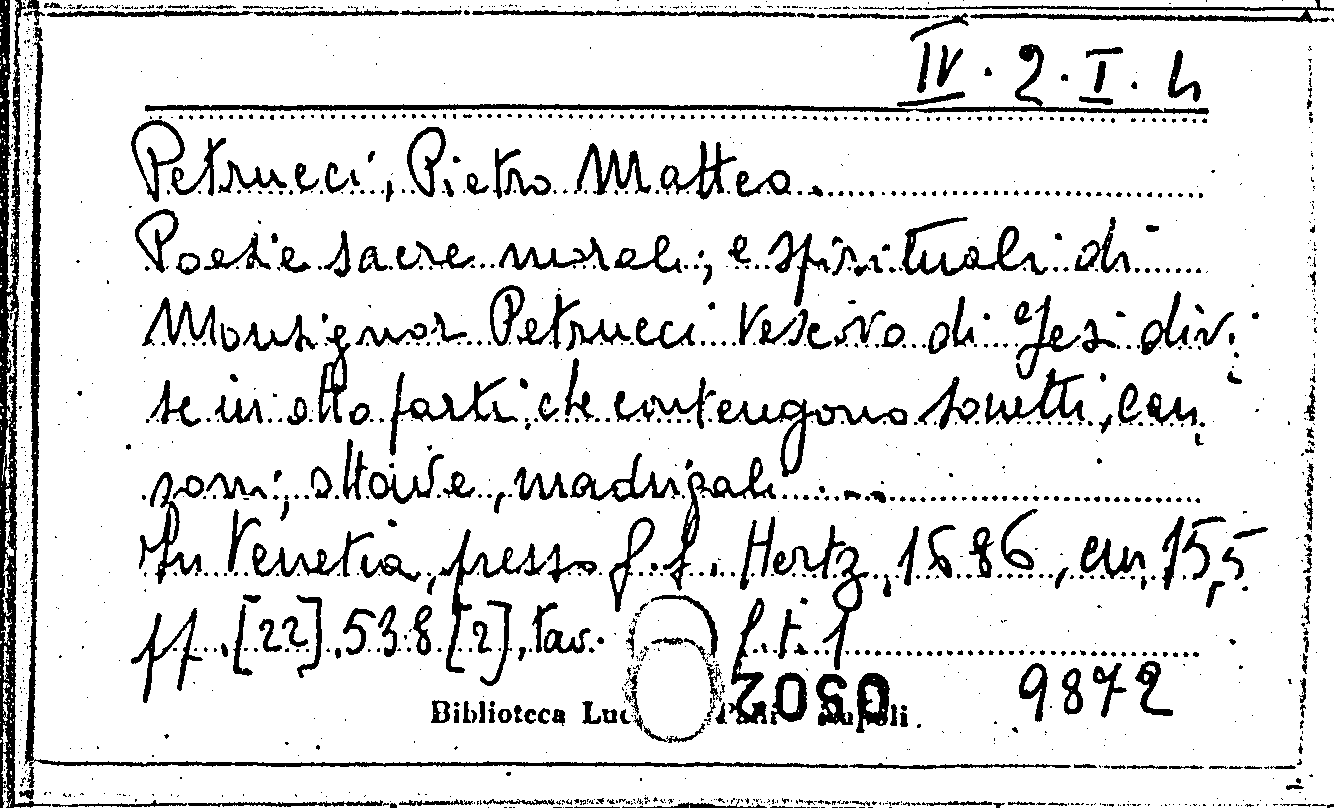 IV. 2. I. 4
Petrucci, Pietro Matteo.
Poesie sacre morali, e spirituali di
Monsignor Petrucci Vescovo di Jesi divi
se in otto parti, che contengono sonetti, can
zoni, ottave, madrigali ...
In Venetia, presso G. G. Hertz, 1686, cm 15,5
pp. [22] 538 [2], tav. f.t. 1
9872
0502
Biblioteca Luc Napoli